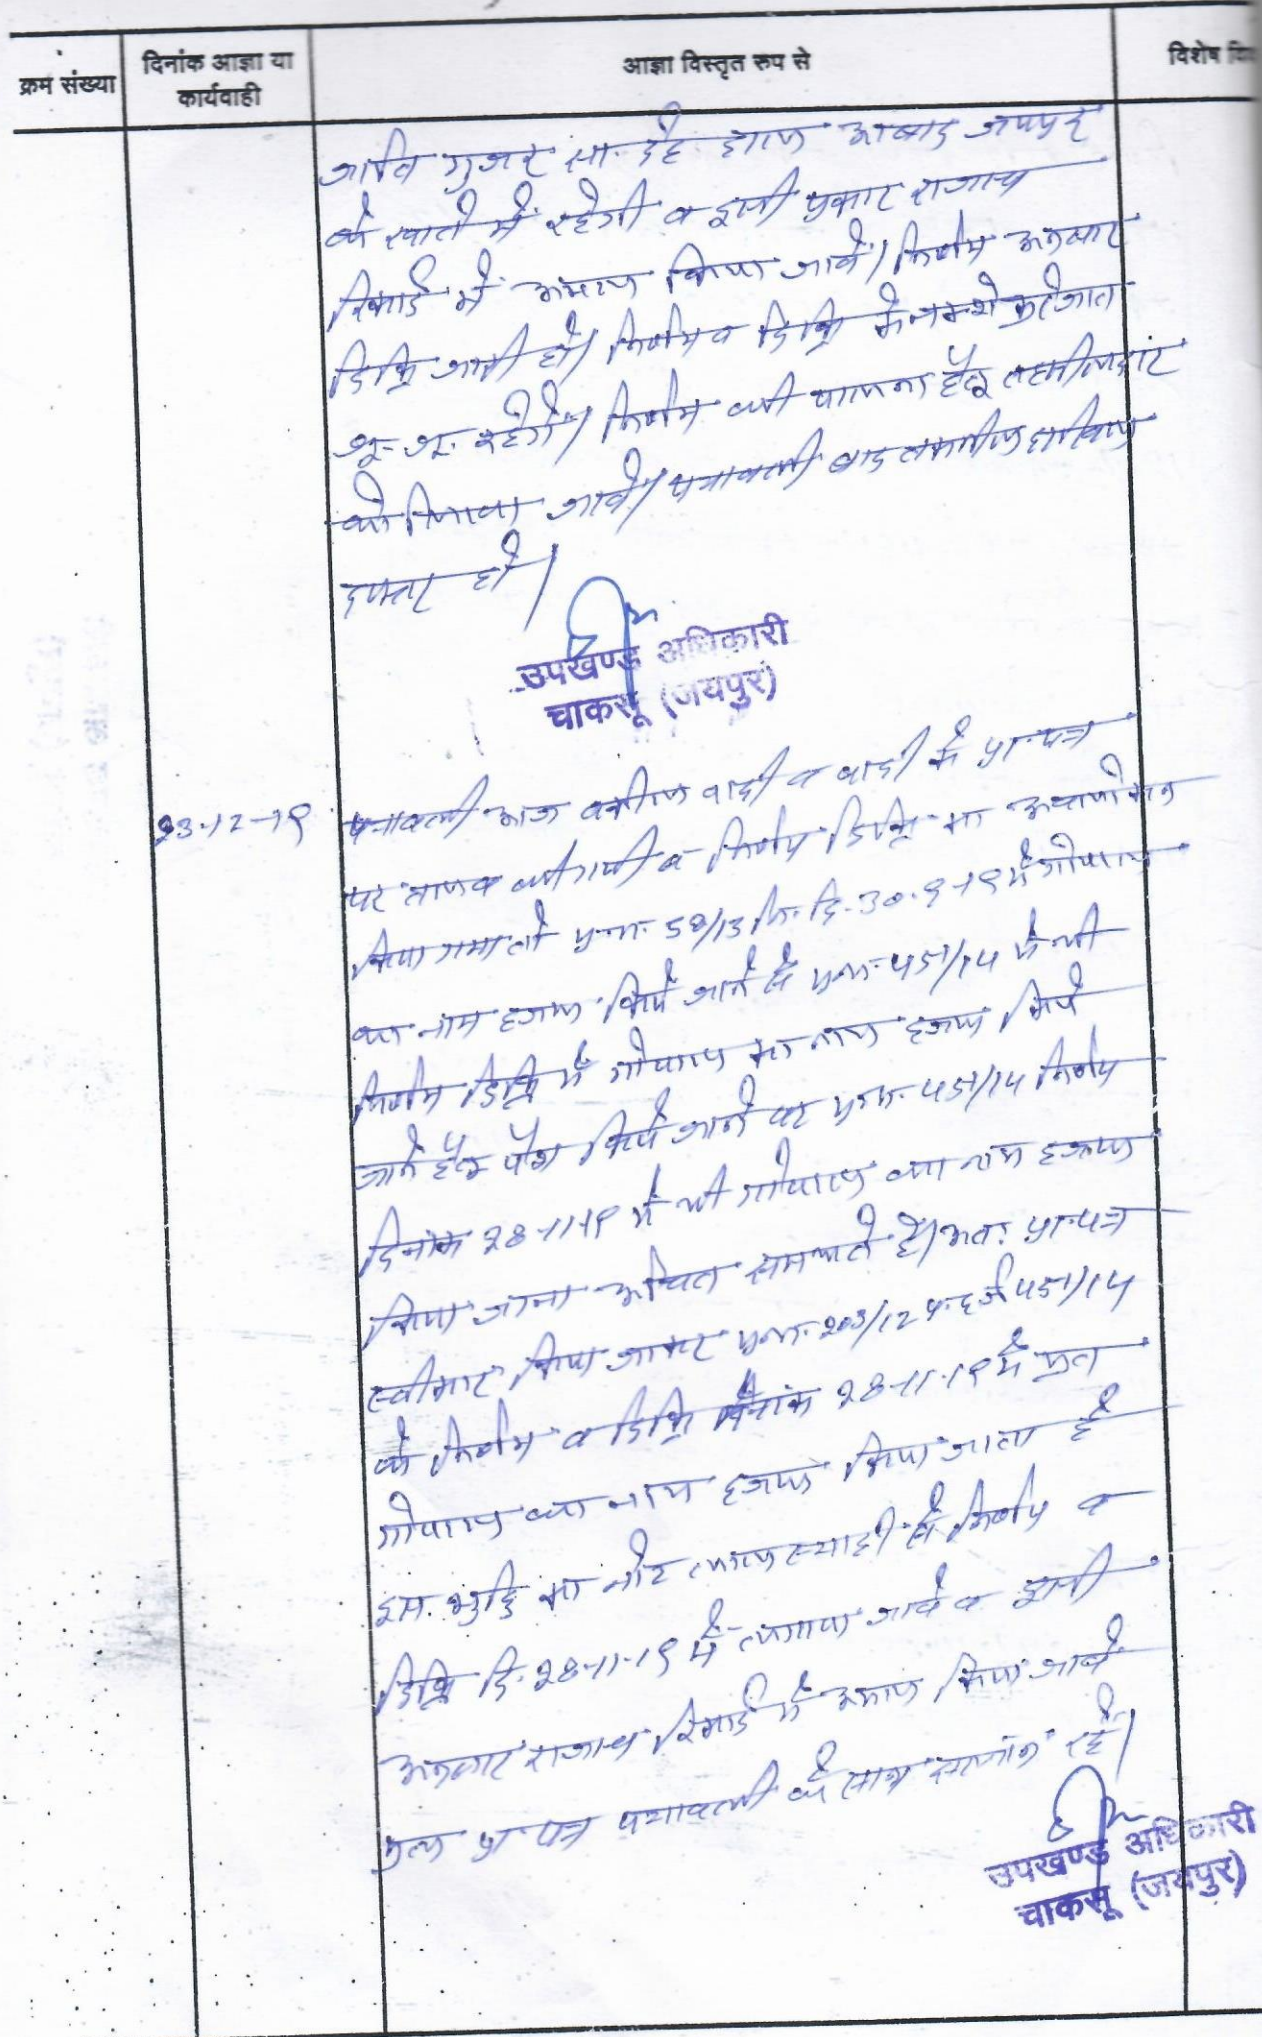 क्रम संख्या
दिनांक आज्ञा या
कार्यवाही
आज्ञा विस्तृत रूप से
विशेष
जाति गुर्जर सा. देह हाल आबाद जयपुर
के खाते में रहेगी व इसी प्रकार राजस्व
रिकार्ड में अमल किया जावे। निर्णय अनुसार
डिक्रि जारी हो। निर्णय व डिक्रि के नक्शे कुरेजात
रहेगें। निर्णय की पालना हेतू तहसीलदार
को लिखा जावे। पत्रावली बाद तकमील दाखिल
दफ्तर हो।
उपखण्ड अधिकारी
चाकसू (जयपुर)
23-12-19
पत्रावली आज वकील वादी व वादी के प्रा.पत्र
पर तलब की गयी व निर्णय डिक्रि का अवलोकन
किया गया तो प्र.न. 58/13 नि. दि. 30-9-19 में गोपाल
का नाम हजफ किये जाने से प्र.न. 451/14 में भी
निर्णय डिक्रि में गोपाल का नाम हजफ किये
जाने हेतू पेश किये जाने पर प्र.न. 451/14 निर्णय
दिनांक 28-11-19 में भी गोपाल का नाम हजफ
किया जाना उचित समझते है। अतः प्रा.पत्र
स्वीकार किया जाकर प्र.न. 203/12 दर्ज 451/14
के निर्णय व डिक्रि दिनांक 28-11-19 में मृत
गोपाल का नाम हजफ किया जाता है
इस शुद्धि का नोट लाल स्याही से निर्णय व
डिक्रि दि. 28-11-19 में लगाया जावे व इसी
अनुसार राजस्व रिकार्ड में अमल किया जावे
मूल प्रा पत्र पत्रावली के साथ संलग्न रहे।
उपखण्ड अधिकारी
चाकसू (जयपुर)